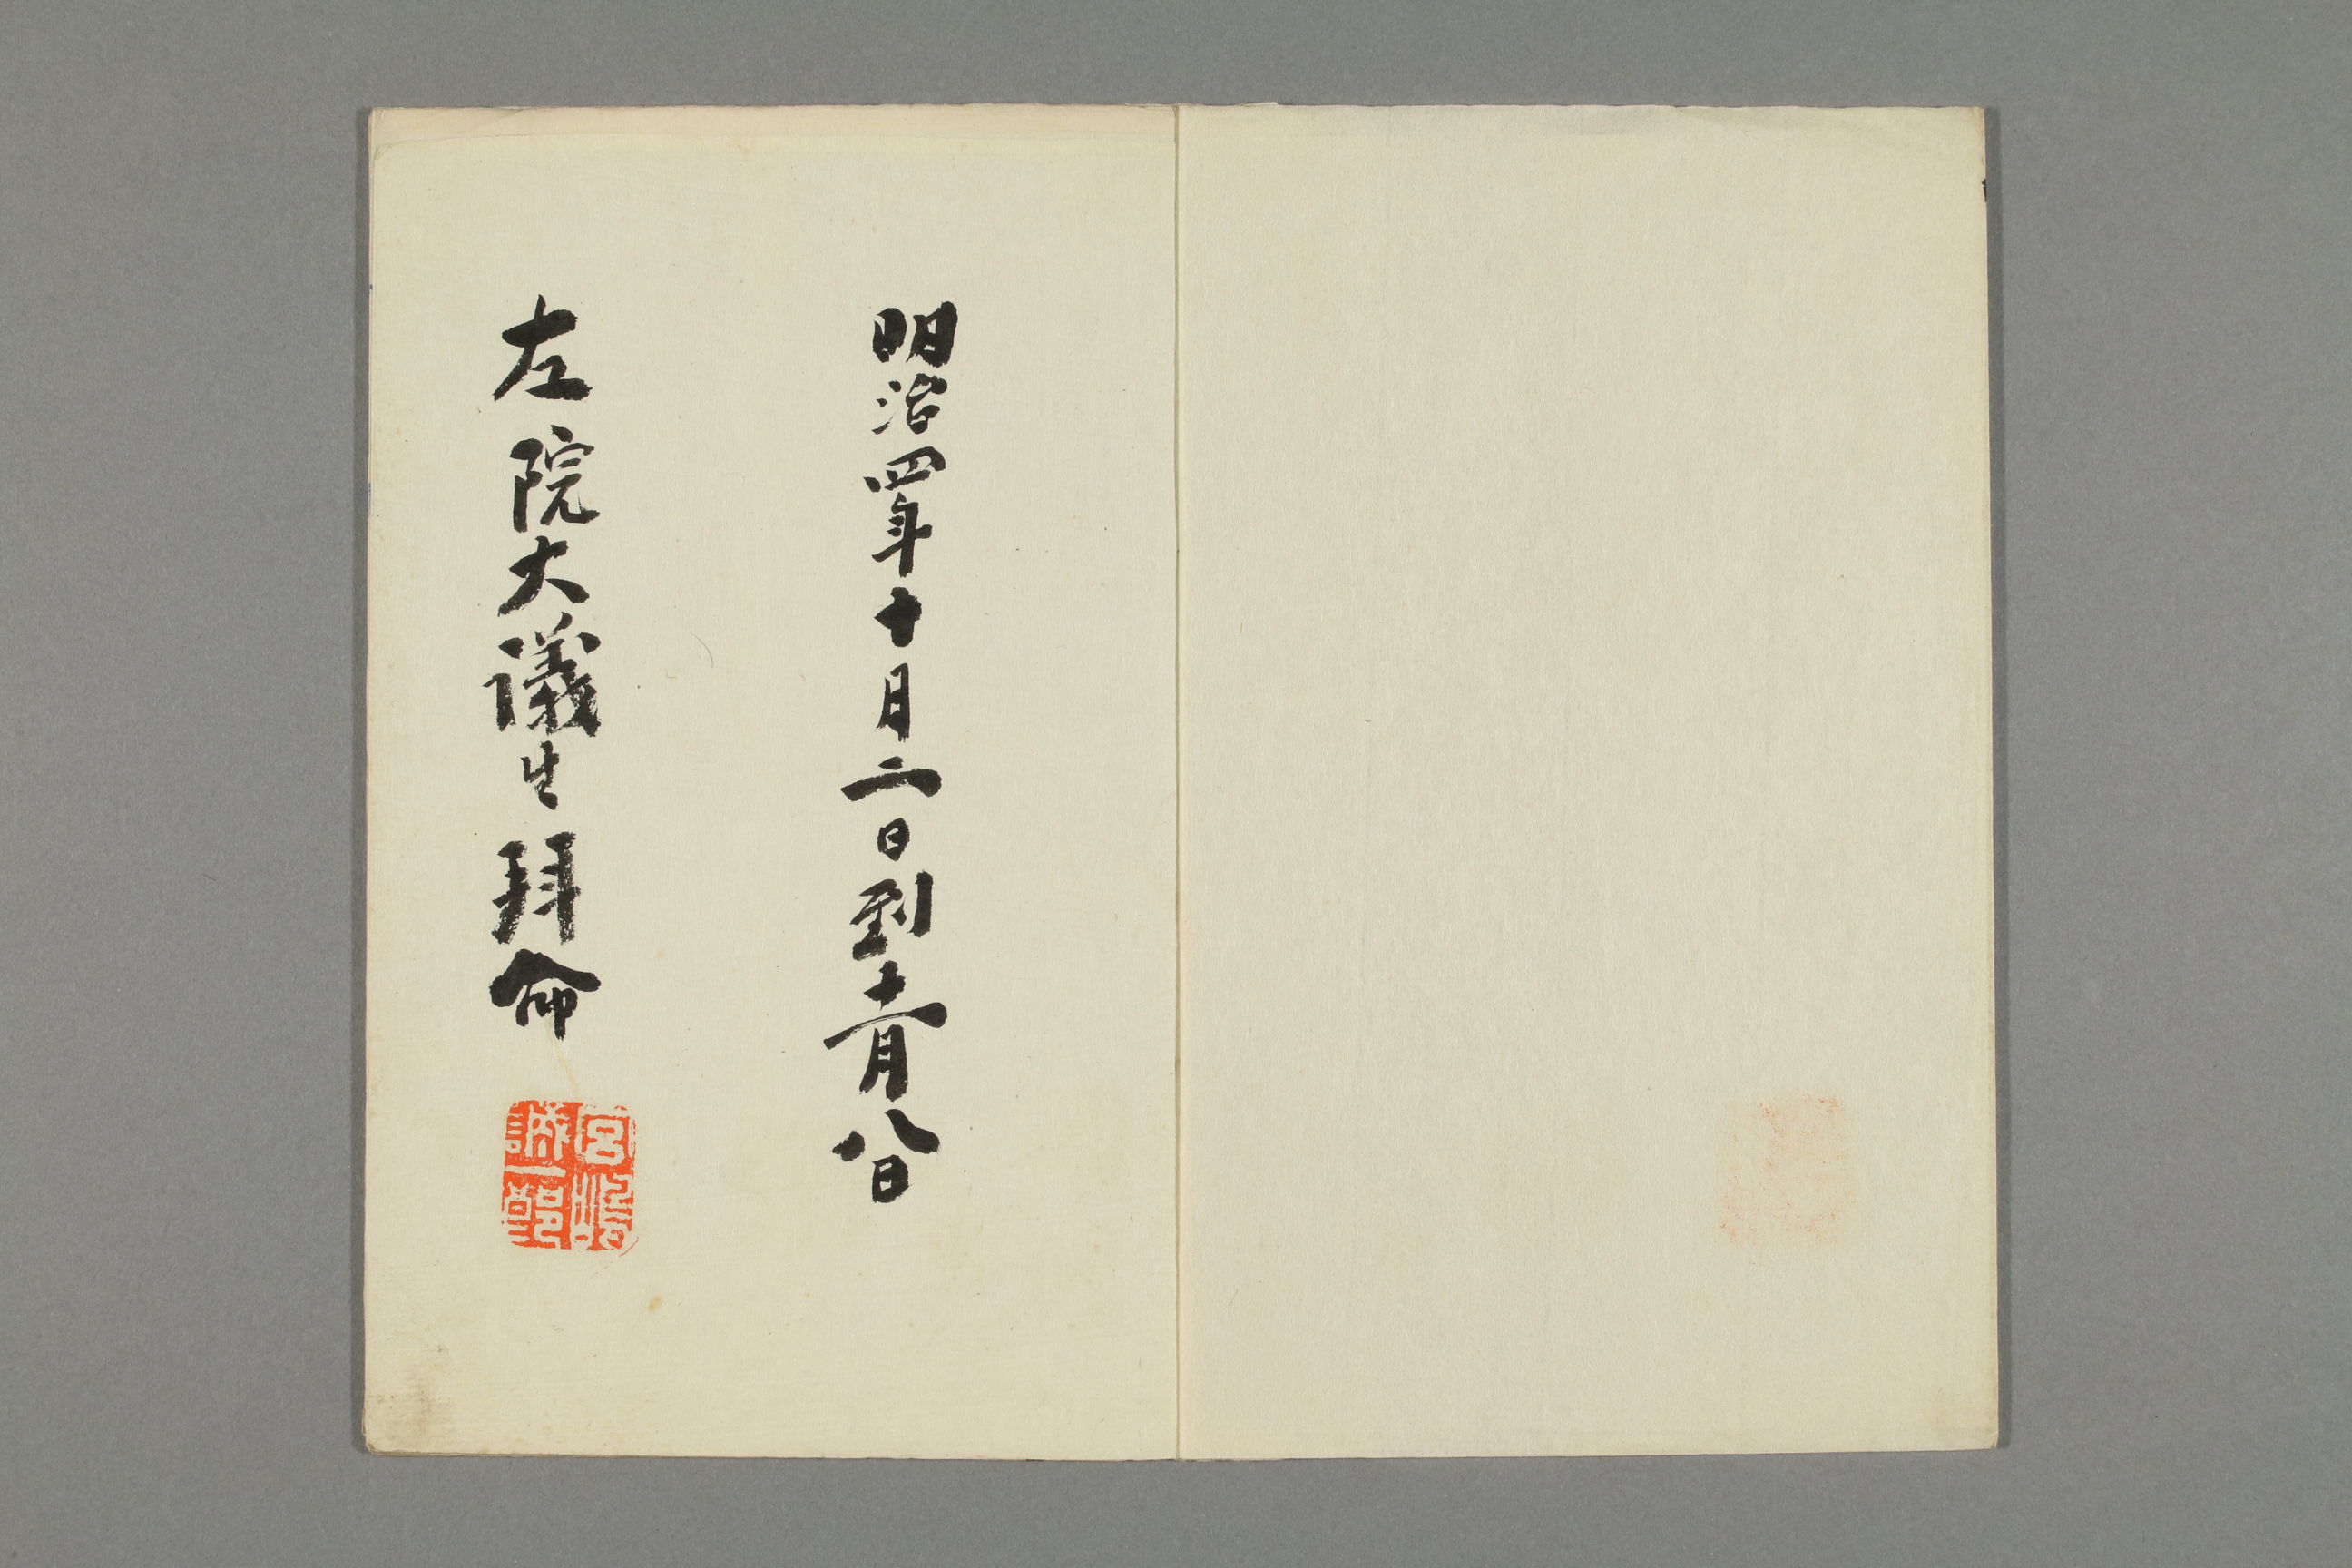 明治四年十月二日到十一月八日
左院大議生拜命
宮島誠一郎